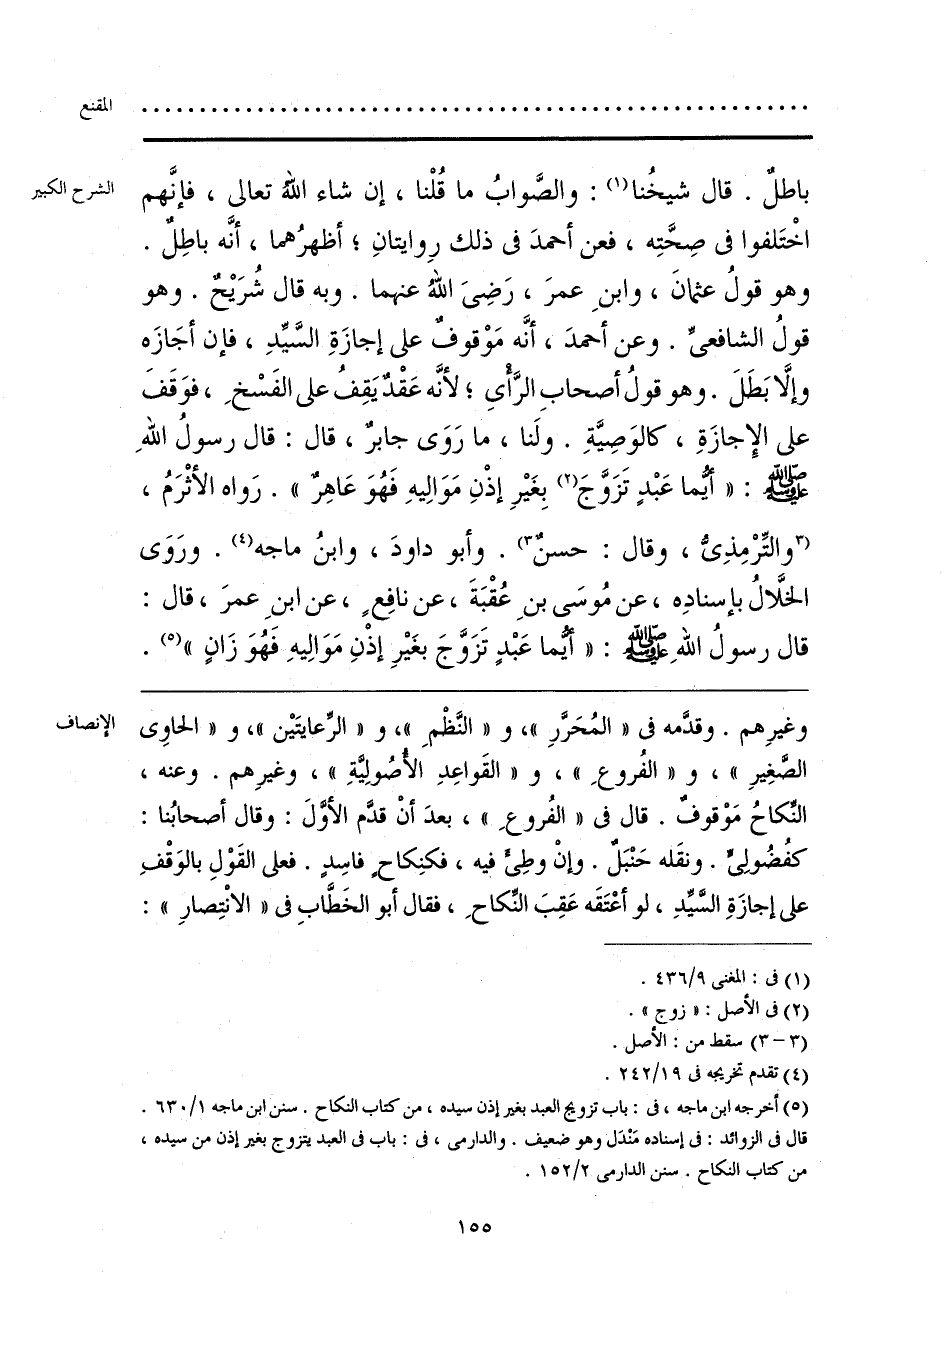 المقنع ............................................................
الشرح الكبير
باطلٌ . قال شيخُنا(١) : والصَّوابُ ما قُلْنا ، إن شاء اللهُ تعالى ، فإنَّهم
اخْتَلفوا فى صِحَّتِه ، فعن أحمدَ فى ذلك رِوايتانِ ؛ أظهرُهما ، أنَّه باطِلٌ .
وهو قولُ عثمانَ ، وابنِ عمرَ ، رَضِىَ اللهُ عنهما . وبه قال شُرَيْحٌ . وهو
قولُ الشافعىِّ . وعن أحمدَ ، أنَّه مَوْقوفٌ على إجازَةِ السَّيِّدِ ، فإن أجَازَه
وإلَّا بَطَلَ . وهو قولُ أصحابِ الرَّأْىِ ؛ لأنَّه عَقْدٌ يَقِفُ على الفَسْخِ ، فوَقَفَ
على الإِجازَةِ ، كالوَصِيَّةِ . ولَنا ، ما رَوَى جابرٌ ، قال : قال رسولُ اللهِ
ﷺ : « أَيُّما عَبْدٍ تَزَوَّجَ(٢) بِغَيْرِ إذْنِ مَوَالِيهِ فَهُوَ عَاهِرٌ » . رَواه الأثْرَمُ ،
(٣والتِّرْمِذِىُّ ، وقال : حسنٌ٣) . وأبو داودَ ، وابنُ ماجه(٤) . ورَوَى
الخَلَّالُ بإسنادِه ، عن مُوسَى بنِ عُقْبَةَ ، عن نافِعٍ ، عن ابنِ عمرَ ، قال :
قال رسولُ اللهِ ﷺ : « أَيُّما عَبْدٍ تَزَوَّجَ بغَيْرِ إذْنِ مَوَالِيهِ فَهُوَ زَانٍ »(٥) .
الإنصاف
وغيرِهم . وقدَّمه فى « المُحَرَّرِ »، و « النَّظْمِ »، و « الرِّعايتَيْن »، و « الحاوِى
الصَّغِيرِ » ، و « الفُروعِ » ، و « القَواعِدِ الأُصُولِيَّةِ » ، وغيرِهم . وعنه ،
النِّكاحُ مَوْقوفٌ . قال فى « الفُروعِ » ، بعدَ أنْ قدَّم الأوَّلَ : وقال أصحابُنا :
كفُضُولِىٍّ . ونقَله حَنْبَلٌ . وإنْ وطِئَ فيه ، فكنِكاحٍ فاسِدٍ . فعلى القَوْلِ بالوَقْفِ
على إجازَةِ السَّيِّدِ ، لو أعْتَقَه عَقِبَ النِّكاحِ ، فقال أبو الخَطَّابِ فى « الانْتِصارِ » :
(١) فى : المغنى ٤٣٦/٩ .
(٢) فى الأصل : « زوج » .
(٣ - ٣) سقط من : الأصل .
(٤) تقدم تخريجه فى ٢٤٢/١٩ .
(٥) أخرجه ابن ماجه ، فى : باب تزويج العبد بغير إذن سيده ، من كتاب النكاح . سنن ابن ماجه ٦٣٠/١ .
قال فى الزوائد : فى إسناده مَنْدَل وهو ضعيف . والدارمى ، فى : باب فى العبد يتزوج بغير إذن من سيده ،
من كتاب النكاح . سنن الدارمى ١٥٢/٢ .
١٥٥